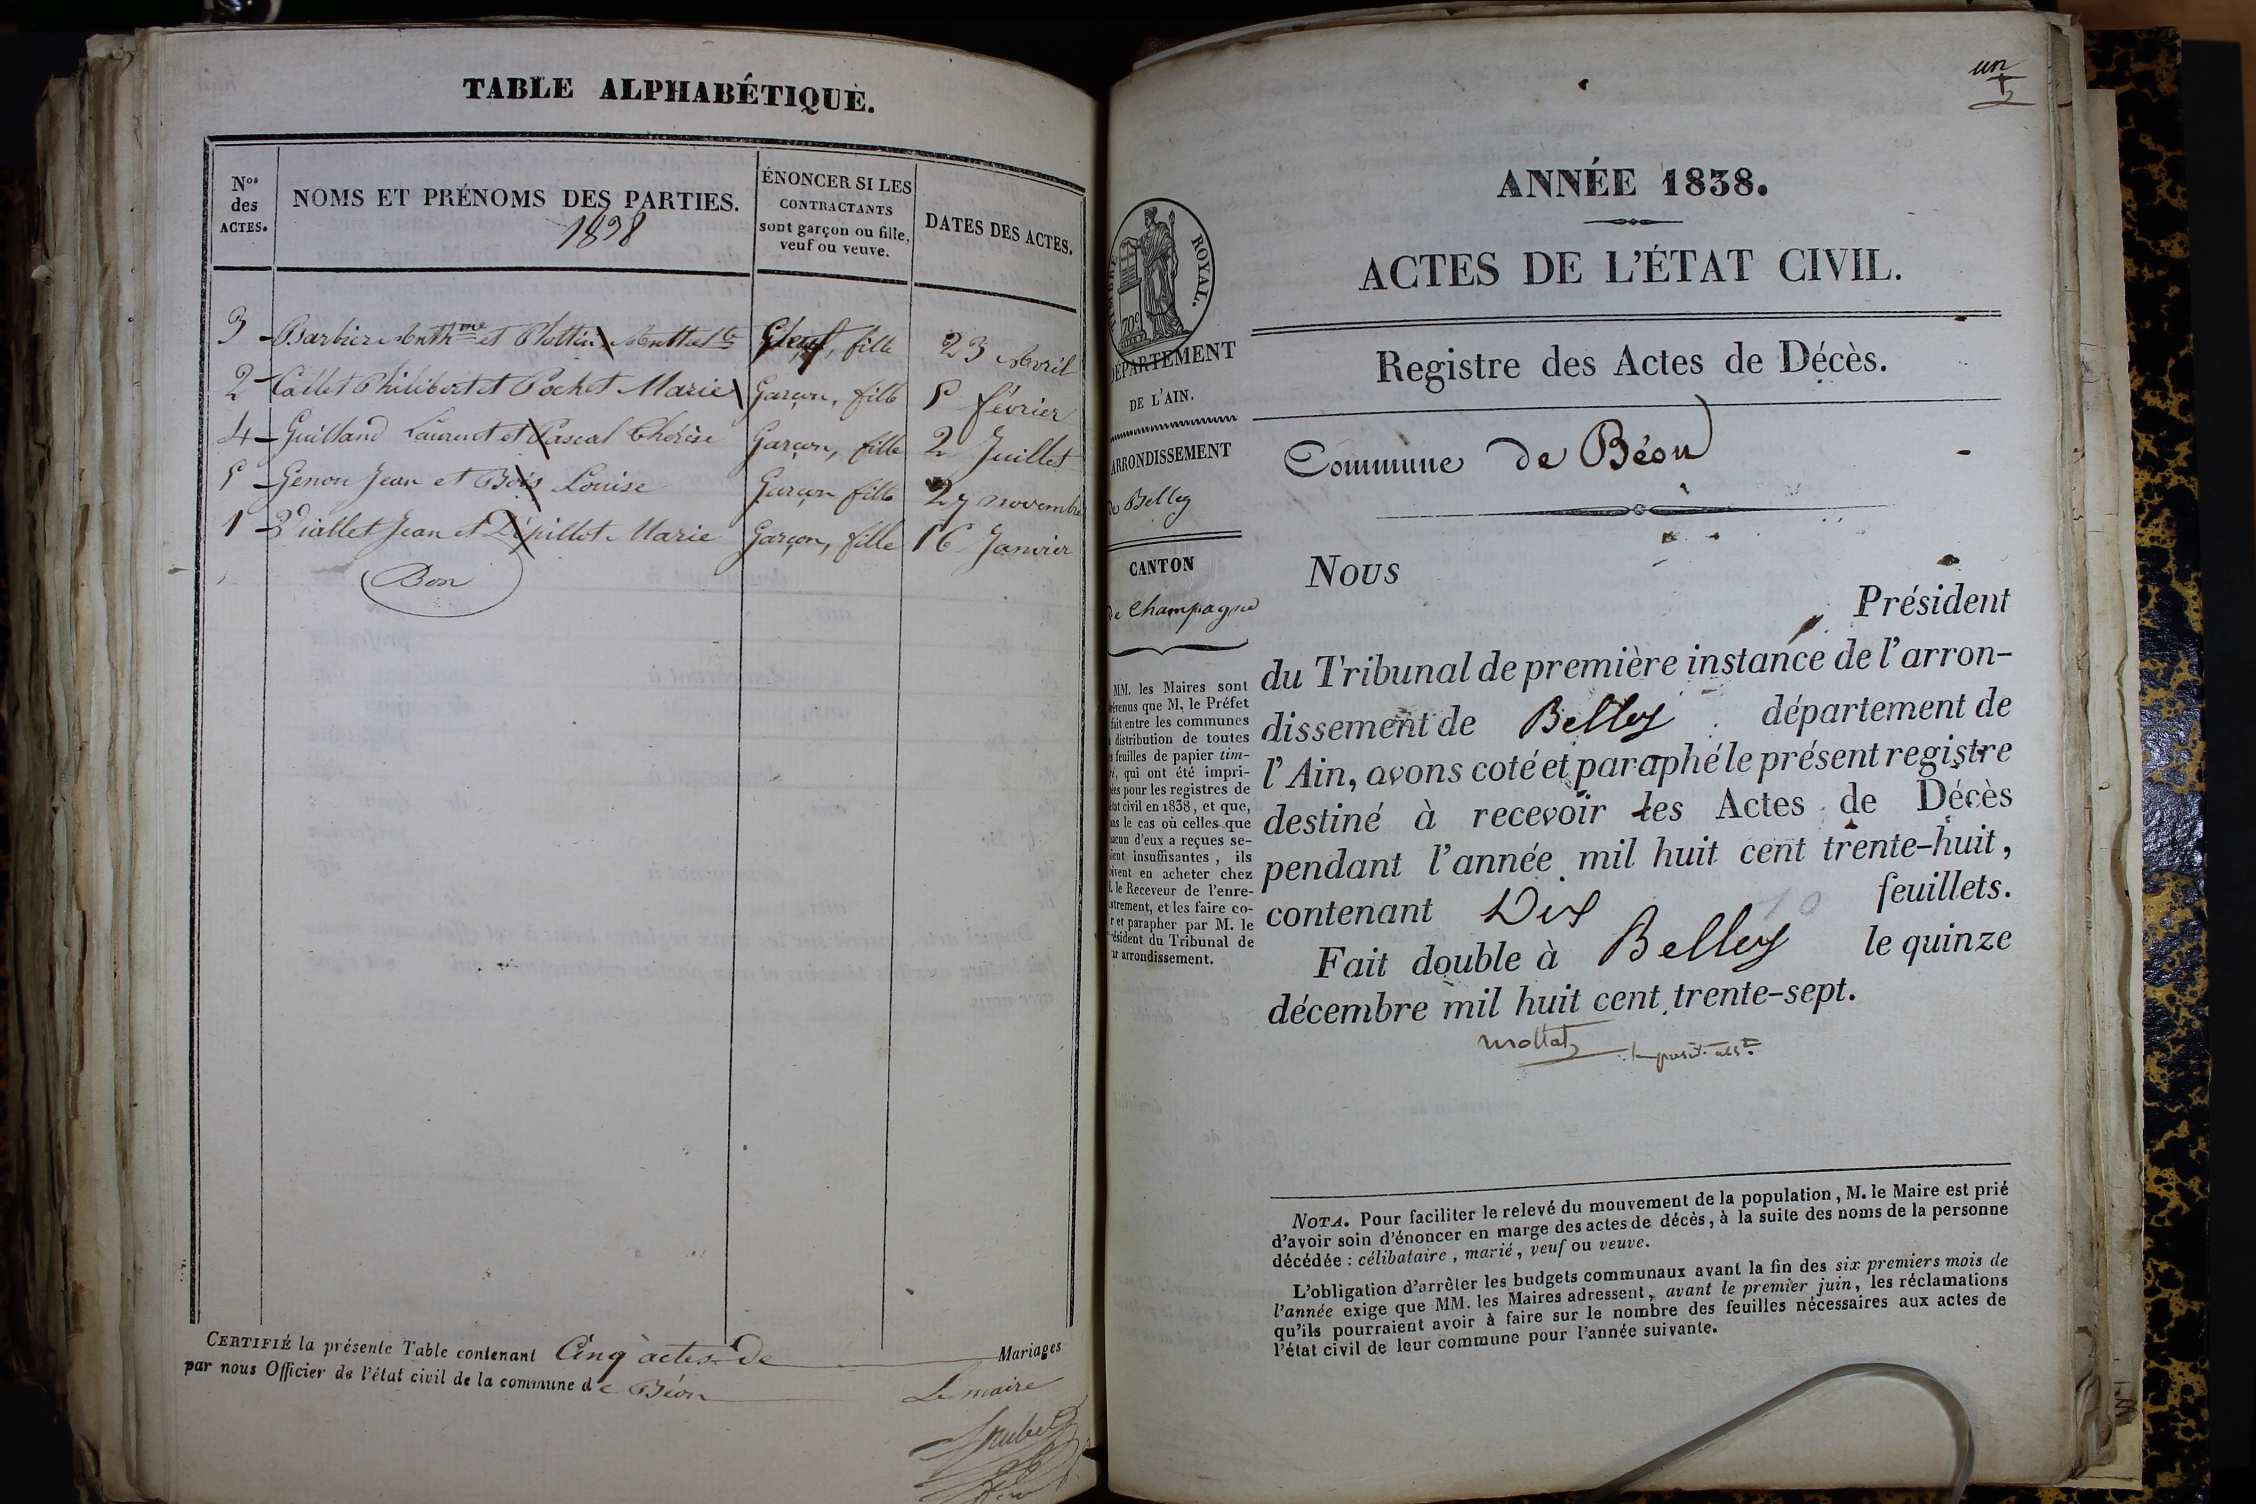 TABLE ALPHABÉTIQUE.
Nos des ACTES.
NOMS ET PRÉNOMS DES PARTIES.
1838
ÉNONCER SI LES
CONTRACTANTS
sont garçon ou fille,
veuf ou veuve.
DATES DES ACTES.
3 Barbier Anthme et fille 23 Avril
2 Callet Philibert et Pochet Marie Garçon, fille 5 février
4 Guilland Laurent et Pascal Thérèse Garçon, fille 2 Juillet
5 Genon Jean et Bois Louise Garçon fille 27 novembre
1 Viallet Jean et Dépillot Marie Garçon, fille 16 Janvier
Bon
CERTIFIÉ la présente Table contenant Cinq actes de Mariages
par nous Officier de l'état civil de la commune de Béon
Le maire
un
2
ANNÉE 1838.
ACTES DE L'ÉTAT CIVIL.
TIMBRE ROYAL.
70c
DÉPARTEMENT
DE L'AIN.
ARRONDISSEMENT
de Belley
CANTON
de Champagne
MM. les Maires sont
prévenus que M. le Préfet
fait entre les communes
la distribution de toutes
les feuilles de papier tim-
bré, qui ont été impri-
mées pour les registres de
état civil en 1838, et que,
dans le cas où celles que
chacun d'eux a reçues se-
raient insuffisantes, ils
doivent en acheter chez
M. le Receveur de l'enre-
gistrement, et les faire co-
ter et parapher par M. le
Président du Tribunal de
leur arrondissement.
Registre des Actes de Décès.
Commune de Béon
Nous
Président
du Tribunal de première instance de l'arron-
dissement de Belley département de
l'Ain, avons coté et paraphé le présent registre
destiné à recevoir les Actes de Décès
pendant l'année mil huit cent trente-huit,
contenant Dix 10 feuillets.
Fait double à Belley le quinze
décembre mil huit cent trente-sept.
NOTA. Pour faciliter le relevé du mouvement de la population, M. le Maire est prié
d'avoir soin d'énoncer en marge des actes de décès, à la suite des noms de la personne
décédée : célibataire, marié, veuf ou veuve.
L'obligation d'arrêter les budgets communaux avant la fin des six premiers mois de
l'année exige que MM. les Maires adressent, avant le premier juin, les réclamations
qu'ils pourraient avoir à faire sur le nombre des feuilles nécessaires aux actes de
l'état civil de leur commune pour l'année suivante.